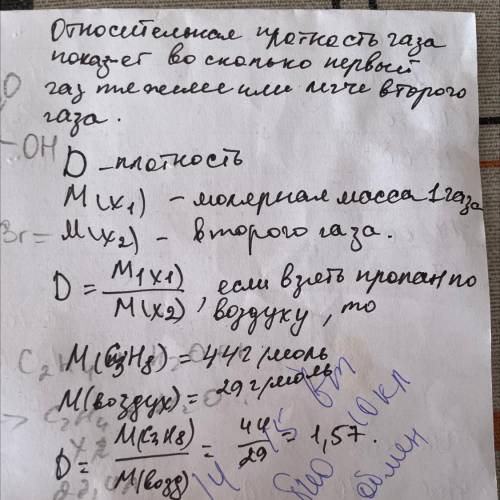 Относительная плотность газа
показ-ет во сколько первый
газ тяжелее или легче второго
газа.
D - плотность
M(x1) - молярная масса 1 газа
M(x2) - второго газа.
D = M1(x1) / M(x2), если взять пропан по
воздуху, то
M(C3H8) = 44 г/моль
M(воздух) = 29 г/моль
D = M(C3H8) / M(возд) = 44 / 29 = 1,57.
-OH
Br=